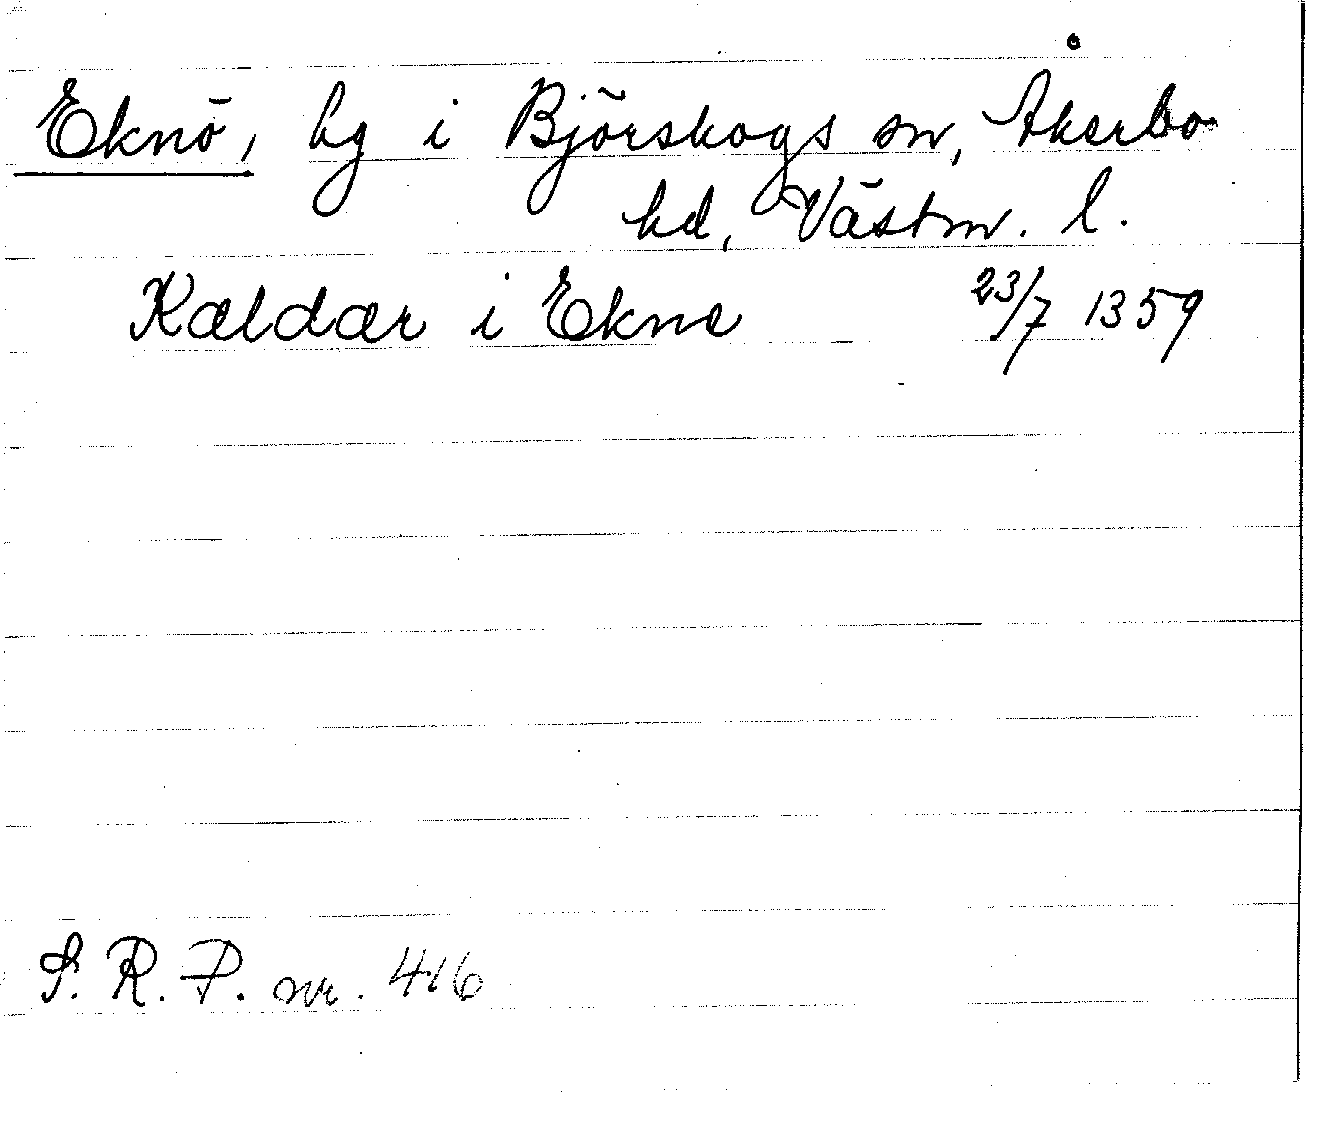 Eknö, by i Björskogs sn, Åkerbo
hd, Västm. l.
Kældær i Ekne 23/7 1359
S. R. P. nr. 416